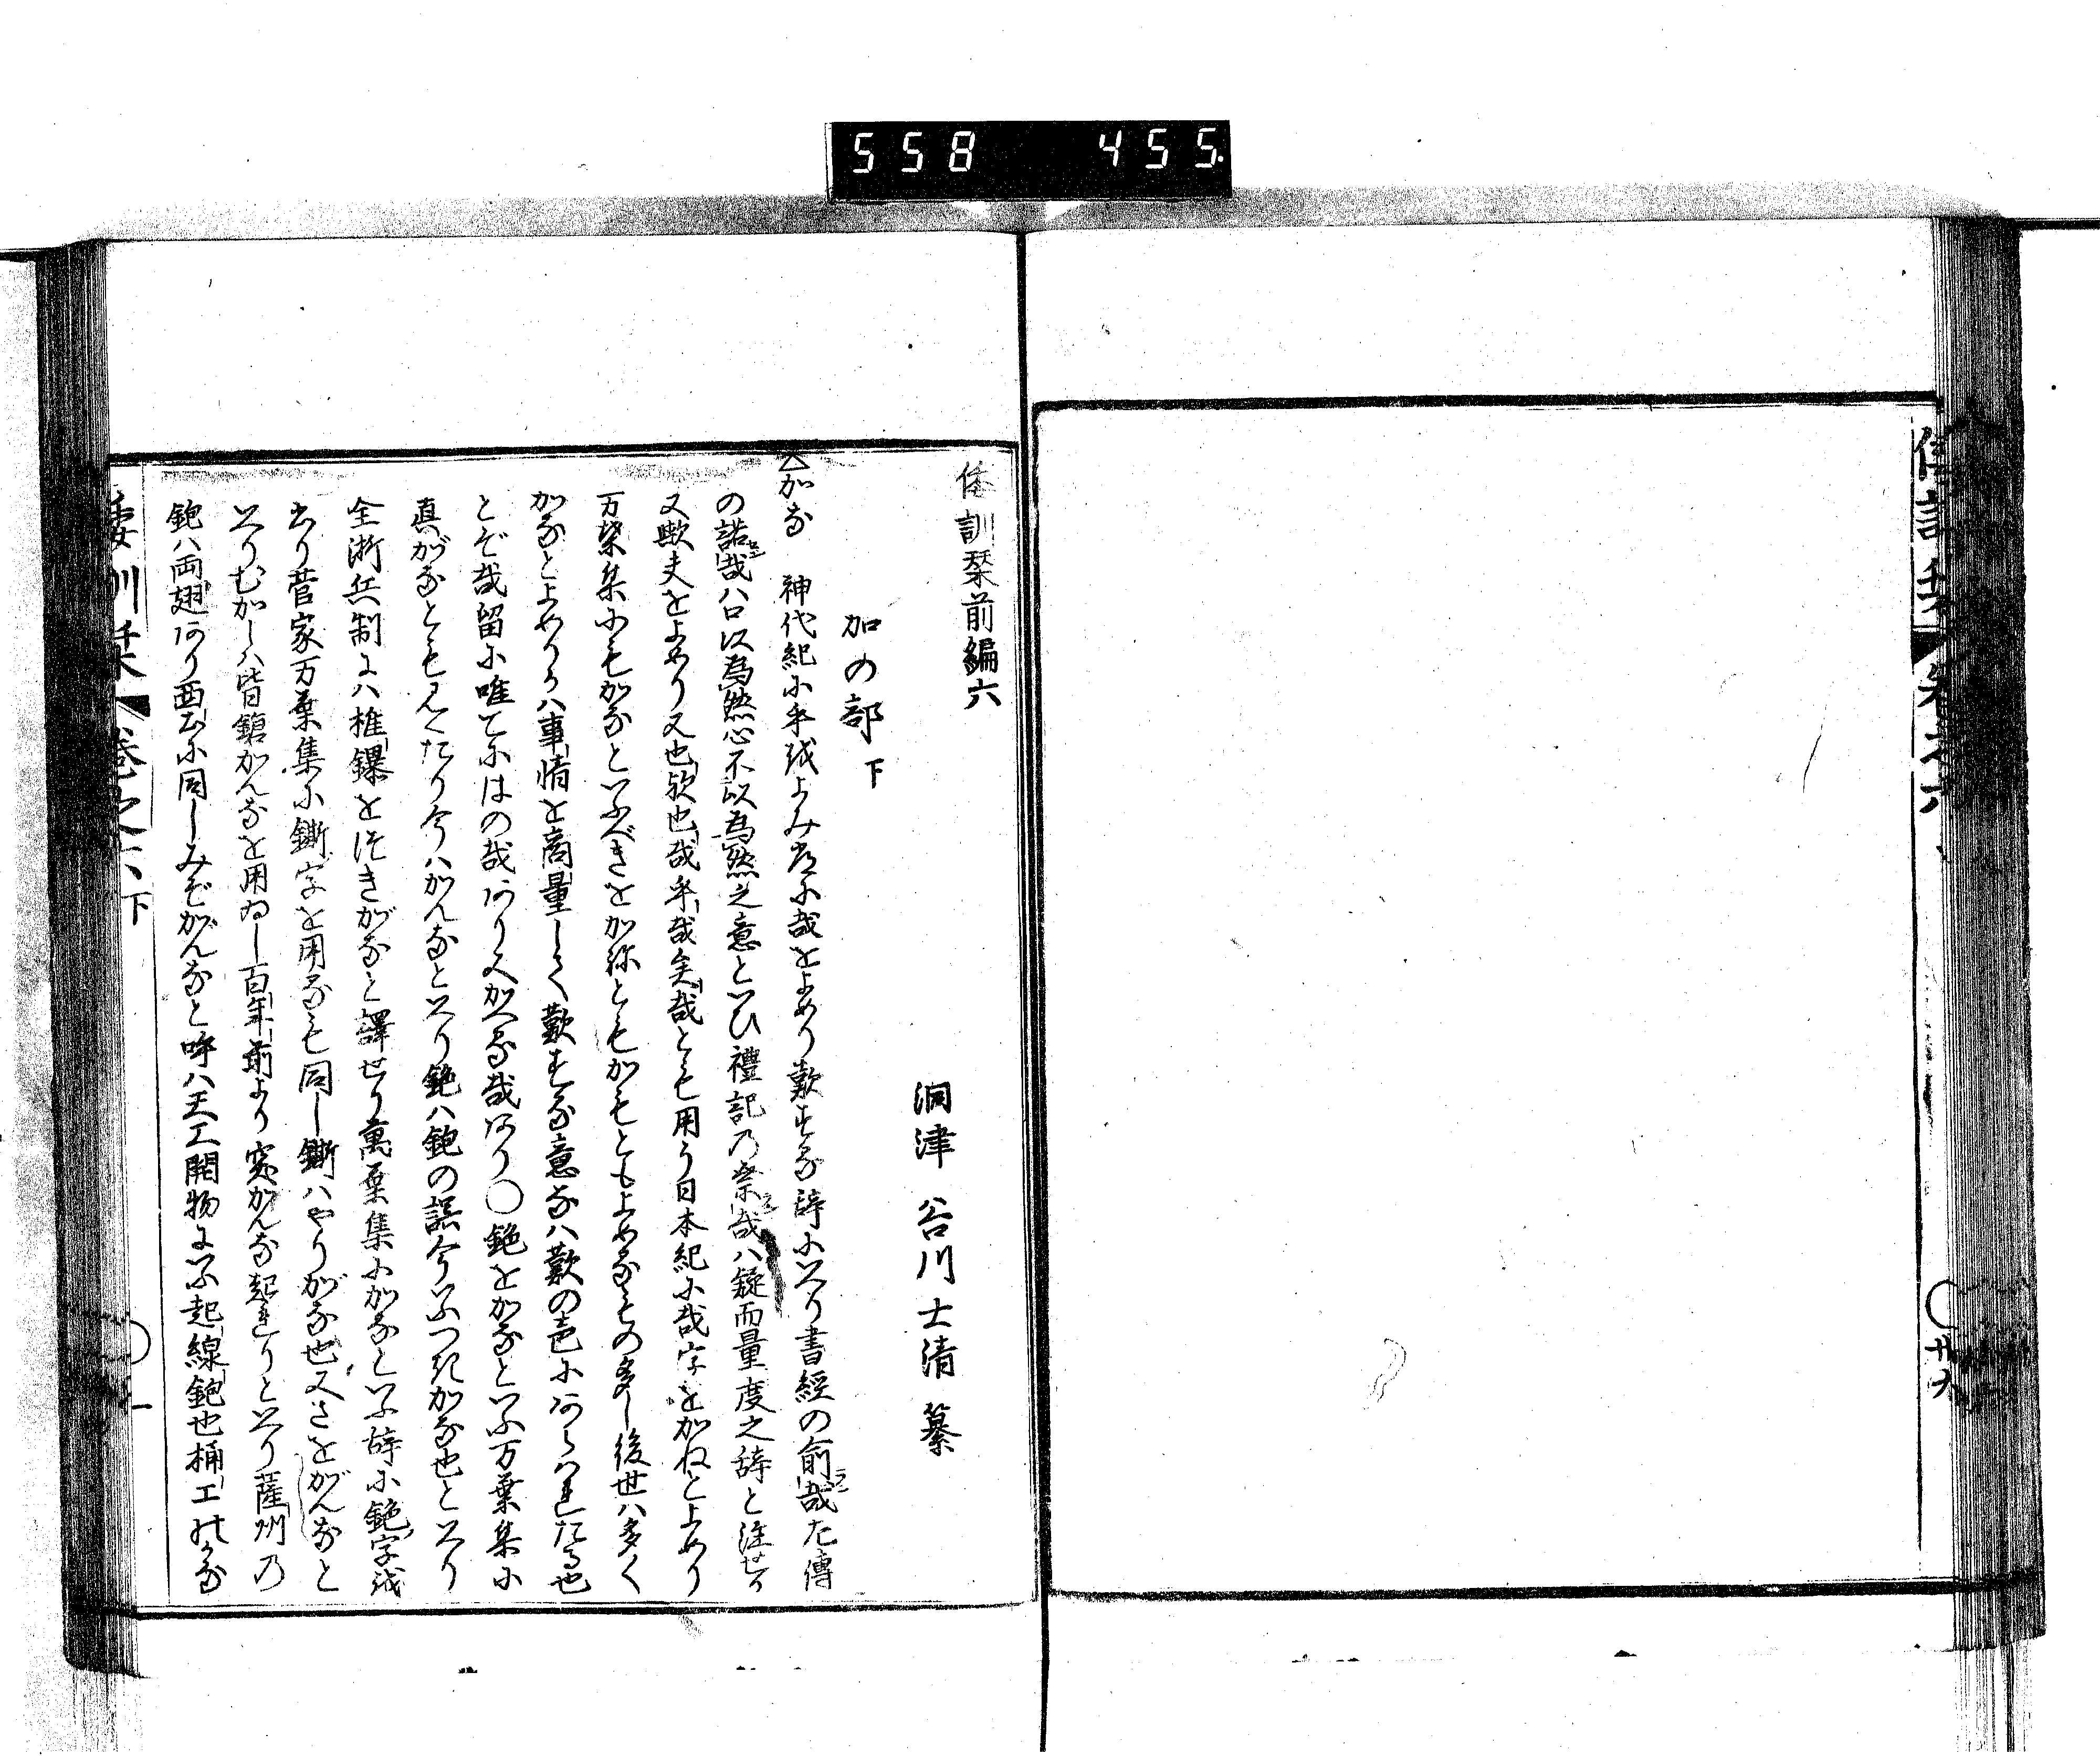 558 455.
倭訓栞前編六
洞津 谷川士清 纂
加の部 下
加な 神代紀に乎をよみ常に哉をよめり歎する辞にいへり書経の兪哉左傳
の諾哉ハ口以為然心不以為然之意といひ禮記乃祭哉ハ疑而量度之辞と注せり
又歟夫をよめり又也欤也哉乎哉矣哉とも用う日本紀に哉字をかねとよめり
万葉集にもかなといふべきをか祢ともかもともよめるもの多し後世ハ多く
かなとよめりかハ事情を商量して歎する意なハ歎の声にあらハれたる也
とぞ哉留に唯てにはの哉あり又かへる哉あり〇鉋をかなといふ万葉集に
真がなとも見えたり今ハかんなといへり鉋ハ鉋の誤今いふつきがな也といへり
全浙兵制にハ推鏍をつきがなと譯せり萬葉集にかなといふ辞に鉋字を
書り菅家万葉集に鐁字を用るも同し鐁ハやりがな也又さをがんなと
いりむかしハ皆鎗かんなを用ゐし百年前より突かんな起れりといへり薩州乃
鉋ハ両翅あり西土に同しみぞがんなと呼ハ天工開物にいふ起線鉋也桶工のかな
倭訓栞 巻之六下